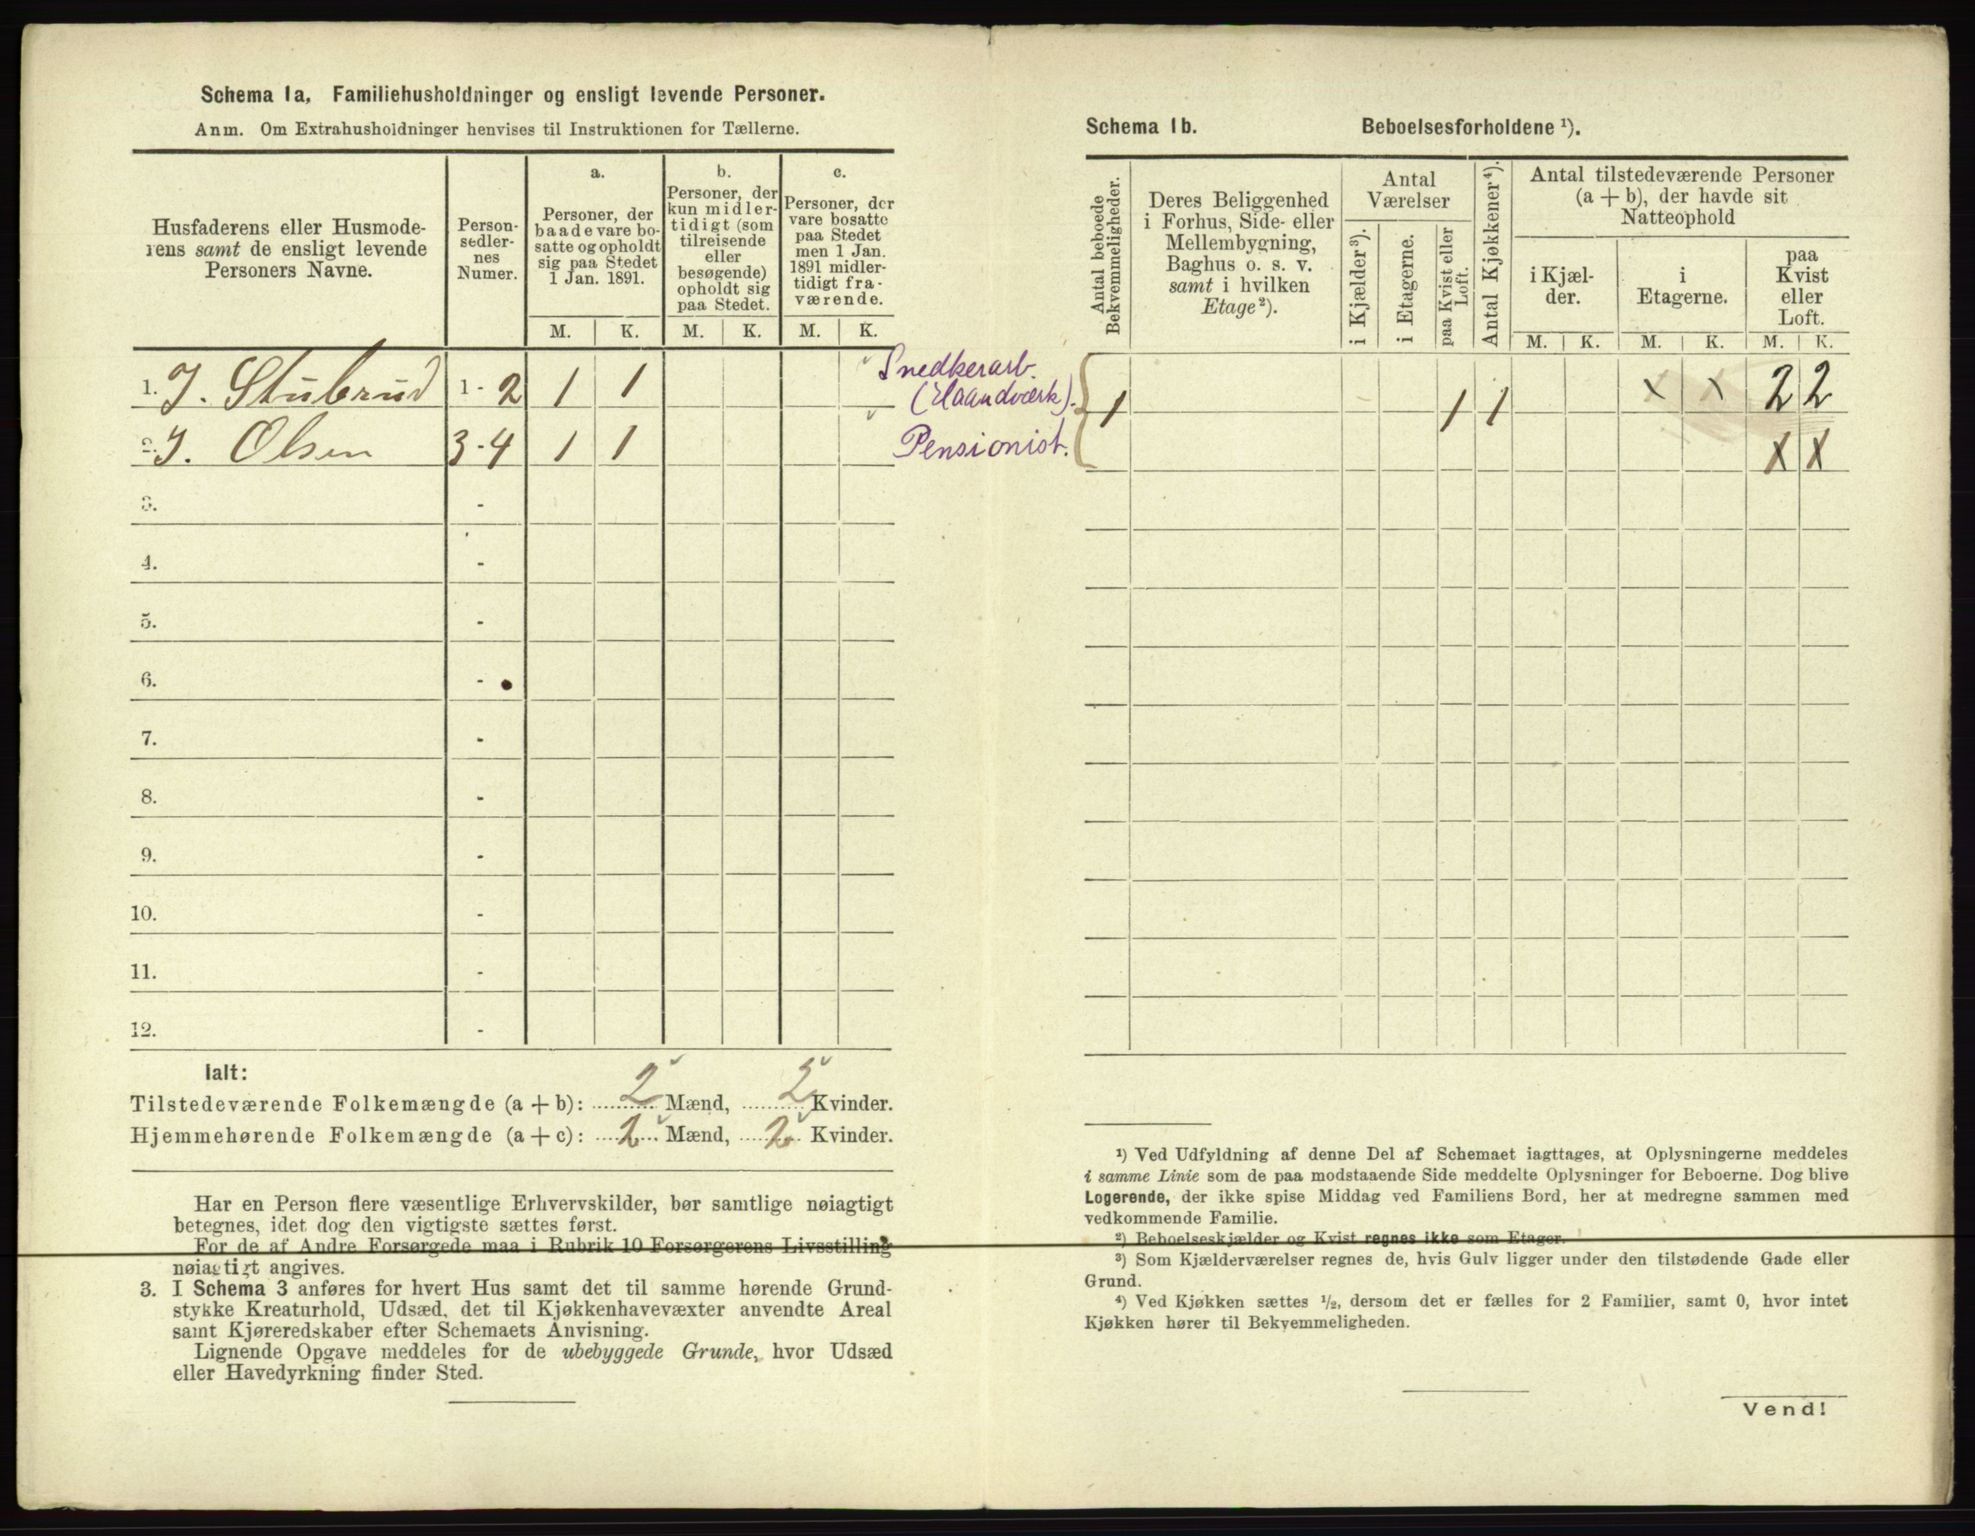 Schema 1a, Familiehusholdninger og ensligt levende Personer.
Anm. Om Extrahusholdninger henvises til Instruktionen for Tællerne.
Husfaderens eller Husmode-
rens samt de ensligt levende
Personers Navne.
Person-
sedler-
nes
Numer.
a.
Personer, der
baade vare bo-
satte og opholdt
sig paa Stedet
1 Jan. 1891.
b.
Personer, der
kun midler-
tidigt (som
tilreisende
eller
besøgende)
opholdt sig
paa Stedet.
c.
Personer, der
vare bosatte
paa Stedet
men 1 Jan.
1891 midler-
tidigt fra-
værende.
M. K. M. K. M. K.
1. J. Stubrud 1 - 2 1 1 Snedkerarb.
(Haandværk).
2. J. Olsen 3 - 4 1 1 Pensionist.
3. -
4. -
5. -
6. -
7. -
8. -
9. -
10. -
11. -
12. -
Ialt:
Tilstedeværende Folkemængde (a + b): 2 Mænd, 2 Kvinder.
Hjemmehørende Folkemængde (a + c): 2 Mænd, 2 Kvinder.
Har en Person flere væsentlige Erhvervskilder, bør samtlige nøiagtigt
betegnes, idet dog den vigtigste sættes først.
For de af Andre Forsørgede maa i Rubrik 10 Forsørgerens Livsstilling
nøiagtigt angives.
3. I Schema 3 anføres for hvert Hus samt det til samme hørende Grund-
stykke Kreaturhold, Udsæd, det til Kjøkkenhavevæxter anvendte Areal
samt Kjøreredskaber efter Schemaets Anvisning.
Lignende Opgave meddeles for de ubebyggede Grunde, hvor Udsæd
eller Havedyrkning finder Sted.
Schema 1b. Beboelsesforholdene ¹).
Antal beboede
Bekvemmeligheder.
Deres Beliggenhed
i Forhus, Side- eller
Mellembygning,
Baghus o. s. v.
samt i hvilken
Etage²).
Antal
Værelser
i Kjælder³).
i Etagerne.
paa Kvist eller
Loft.
Antal Kjøkkener⁴).
Antal tilstedeværende Personer
(a + b), der havde sit
Natteophold
i Kjæl-
der.
i
Etagerne.
paa
Kvist
eller
Loft.
M. K. M. K. M. K.
1 1 1 x x 2 2
x x
¹) Ved Udfyldning af denne Del af Schemaet iagttages, at Oplysningerne meddeles
i samme Linie som de paa modstaaende Side meddelte Oplysninger for Beboerne. Dog blive
Logerende, der ikke spise Middag ved Familiens Bord, her at medregne sammen med
vedkommende Familie.
²) Beboelseskjælder og Kvist regnes ikke som Etager.
³) Som Kjælderværelser regnes de, hvis Gulv ligger under den tilstødende Gade eller
Grund.
⁴) Ved Kjøkken sættes ½, dersom det er fælles for 2 Familier, samt 0, hvor intet
Kjøkken hører til Bekvemmeligheden.
Vend!